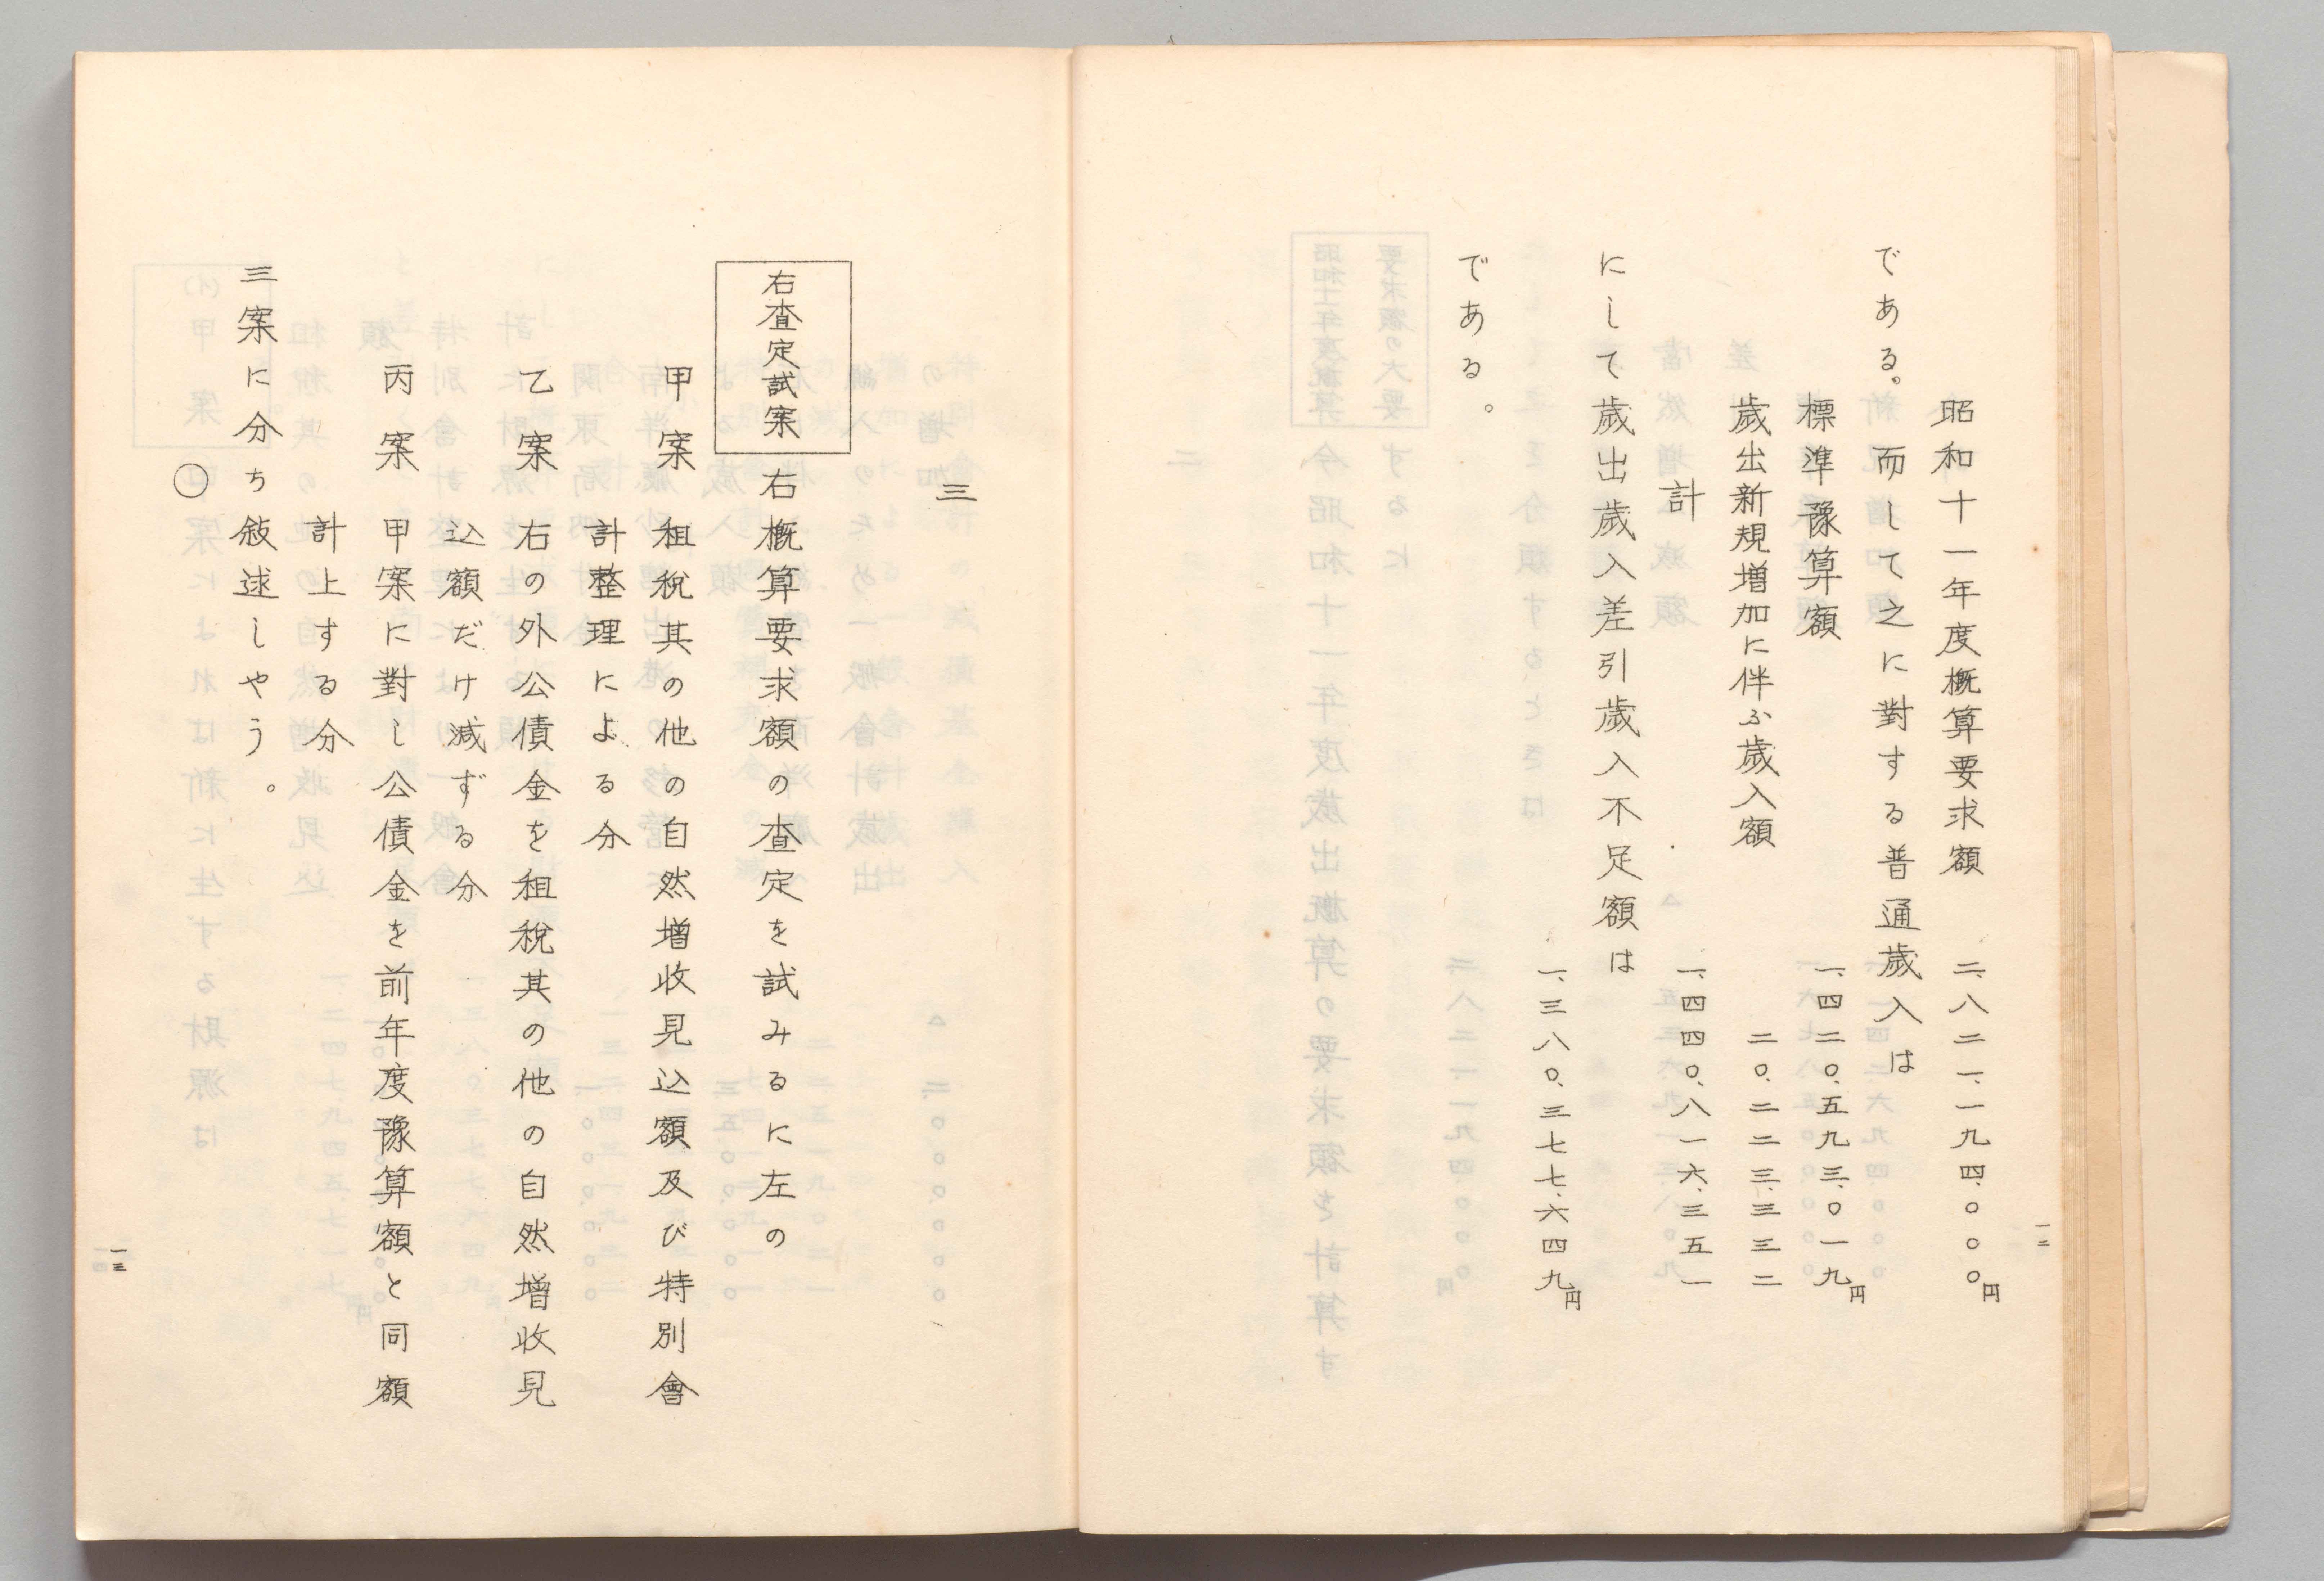 昭和十一年度概算要求額 二、八二一、一九四、〇〇〇円
である。而して之に對する普通歳入は
標準豫算額 一、四二〇、五九三、〇一九円
歳出新規増加に伴ふ歳入額 二〇、二二三、三三二
計 一、四四〇、八一六、三五一
にして歳出歳入差引歳入不足額は
一、三八〇、三七七、六四九円
である。
一二
三
右査定試案
右概算要求額の査定を試みるに左の
甲案 租税其の他の自然増收見込額及び特別會
計整理による分
乙案 右の外公債金を租税其の他の自然増收見
込額だけ減ずる分
丙案 甲案に對し公債金を前年度豫算額と同額
計上する分
三案に分ち敍述しやう。
〇
一三